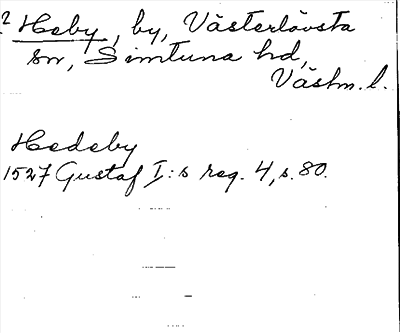 2 Heby, by, Västerlövsta
sn, Simtuna hd,
Västm. l.
Hedeby
1527 Gustaf I:s reg. 4, s. 80.